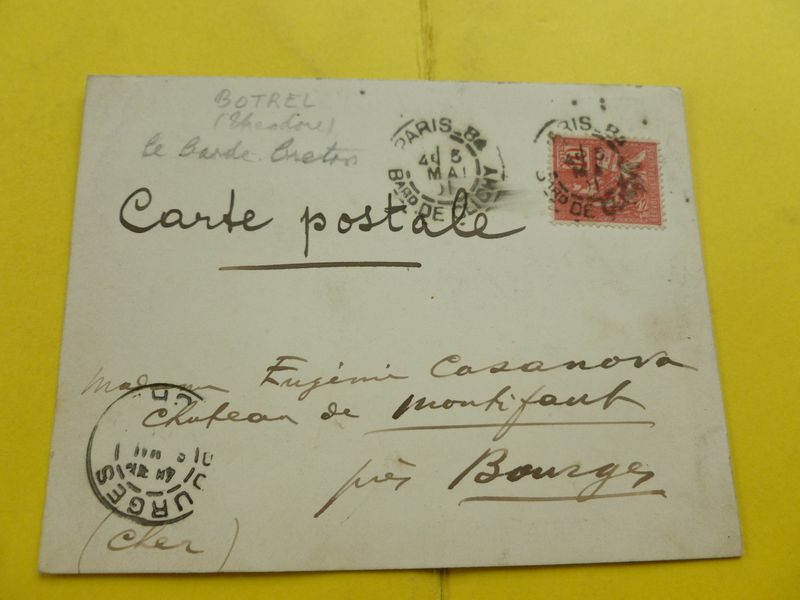 BOTREL
(Théodore)
Le Barde Breton
PARIS. 84
4E 5
MAI
01
BARD DE CLICHY
Carte postale
Madame Eugénie Casanova
Chateau de Montifaut
près Bourges
(Cher)
URGES
CH